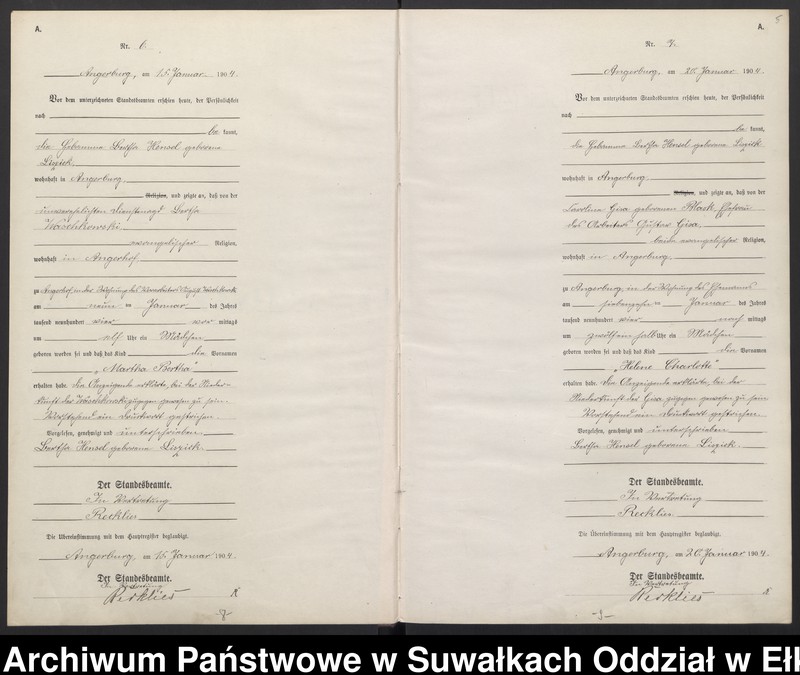 A.
Nr. 6.
Angerburg, am 15. Januar 1904.
Vor dem unterzeichneten Standesbeamten erschien heute, der Persönlichkeit
nach
be kannt,
die Hebamme Bertha Hensel geborene
Liszick
wohnhaft in Angerburg,
Religion, und zeigte an, daß von der
unverehelichten Dienstmagd Bertha
Waschkowski
evangelischer Religion,
wohnhaft in Angerhof
zu Angerhof, in der Wohnung des August Waschkowski
am neun ten Januar des Jahres
tausend neunhundert vier vor mittags
um elf Uhr ein Mädchen
geboren worden sei und daß das Kind die Vornamen
"Martha Bertha"
erhalten habe. Die Anzeigende erklärte, bei der Nieder-
kunft der Waschkowski zugegen gewesen zu sein
Vorstehend ein Druckwort gestrichen.
Vorgelesen, genehmigt und unterschrieben
Bertha Hensel geborene Liszick
Der Standesbeamte.
In Vertretung
Recklies
Die Übereinstimmung mit dem Hauptregister beglaubigt.
Angerburg, am 15. Januar 1904.
Der Standesbeamte.
In Vertretung
Recklies
A.
Nr. 7.
Angerburg, am 20. Januar 1904.
Vor dem unterzeichneten Standesbeamten erschien heute, der Persönlichkeit
nach
be kannt,
die Hebamme Bertha Hensel geborene Liszick
wohnhaft in Angerburg
Religion, und zeigte an, daß von der
Caroline Gisa geborenen Plaschk, Ehefrau
des Arbeiters Gustav Gisa,
beide evangelischer Religion,
wohnhaft in Angerburg
zu Angerburg, in der Wohnung des Ehemannes
am siebenzehn ten Januar des Jahres
tausend neunhundert vier nach mittags
um zwölf einhalb Uhr ein Mädchen
geboren worden sei und daß das Kind die Vornamen
"Helene Charlotte"
erhalten habe. Die Anzeigende erklärte, bei der
Niederkunft der Gisa zugegen gewesen zu sein
Vorstehend ein Druckwort gestrichen.
Vorgelesen, genehmigt und unterschrieben
Bertha Hensel geborene Liszick
Der Standesbeamte.
In Vertretung
Recklies
Die Übereinstimmung mit dem Hauptregister beglaubigt.
Angerburg, am 20. Januar 1904.
Der Standesbeamte.
In Vertretung
Recklies
Archiwum Państwowe w Suwałkach Oddział w Ełk